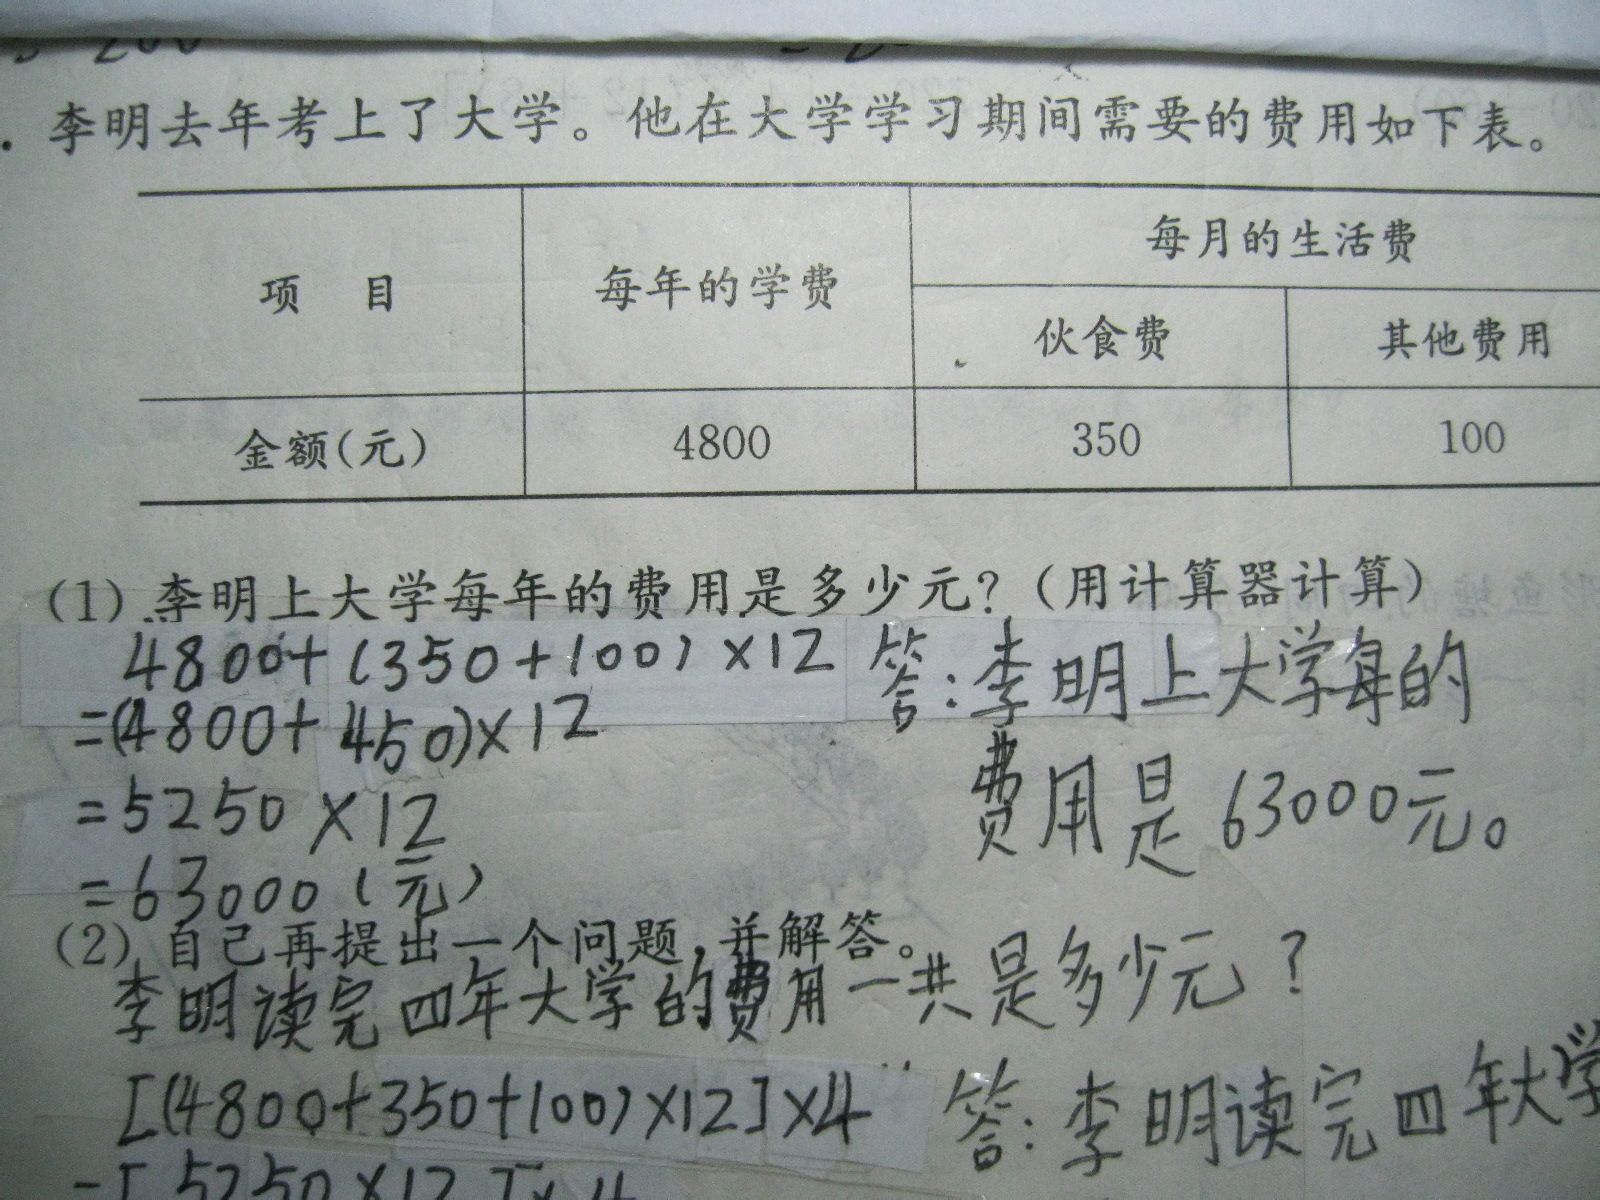 李明去年考上了大学。他在大学学习期间需要的费用如下表。
项 目 每年的学费 每月的生活费
伙食费 其他费用
金额(元) 4800 350 100
(1) 李明上大学每年的费用是多少元?(用计算器计算)
4800+(350+100)×12 答:李明上大学每年的
=(4800+450)×12
费用是63000元。
=5250×12
=63000(元)
(2) 自己再提出一个问题,并解答。
李明读完四年大学的费用一共是多少元?
[(4800+350+100)×12]×4 答:李明读完四年大学
=[5250×12]×4